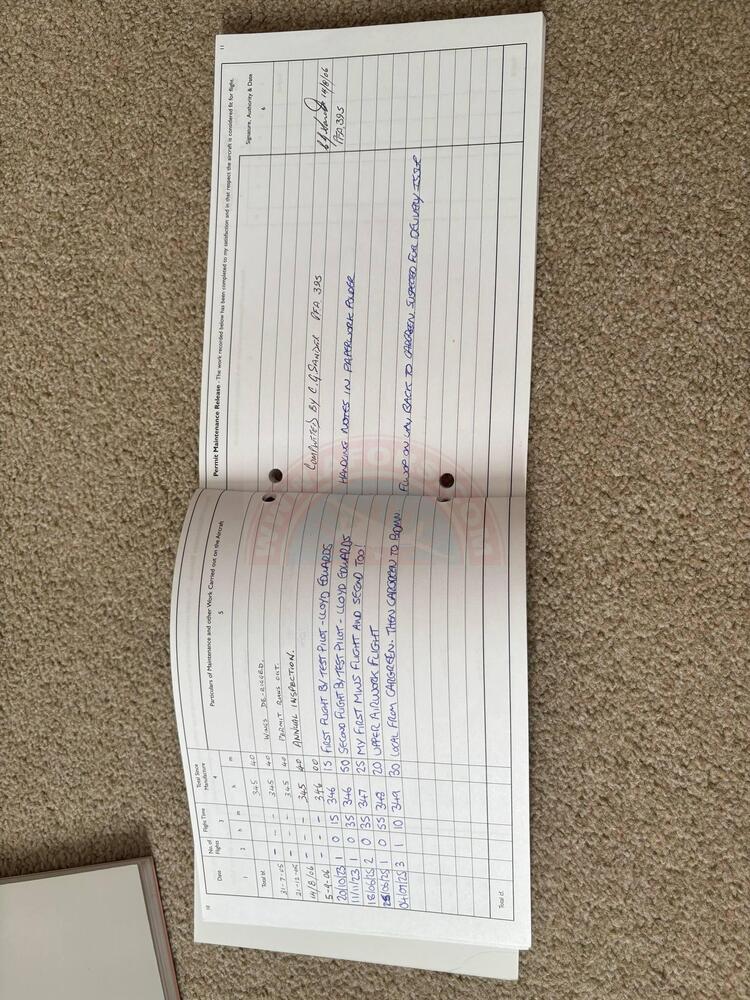 10
Date
No. of Flights
Flight Time
Total Since Manufacture
Particulars of Maintenance and other Work Carried out on the Aircraft
1 2 3 4 5
h m h m
Total bf. 345 40
31-7-05 - - - 345 40 WINGS DE-RIGGED.
21-12-05 - - - 345 40 PERMIT RUNS OUT.
14/8/06 - - - 345 40 ANNUAL INSPECTION.
5-9-06 - - - 346 00
20/10/23 1 0 15 346 15 FIRST FLIGHT BY TEST PILOT - LLOYD EDWARDS
11/11/23 1 0 35 346 50 SECOND FLIGHT BY TEST PILOT - LLOYD EDWARDS
18/06/25 2 0 35 347 25 MY FIRST MWS FLIGHT AND SECOND TOO!
25/06/25 1 0 55 348 20 UPPER AIRWORK FLIGHT
04/07/25 3 1 10 349 30 LOCAL FROM CARGREEN. THEN CARGREEN TO
Total cf.
11
Permit Maintenance Release - The work recorded below has been completed to my satisfaction and in that respect the aircraft is considered fit for flight.
Signature, Authority & Date
6
COMPLETED BY C.G SANDER PFA 395
14/8/06
PFA 395
HANDLING NOTES IN PAPERWORK FOLDER
ON WAY BACK TO CARGREEN. SUSPECTED FUEL DELIVERY ISSUE